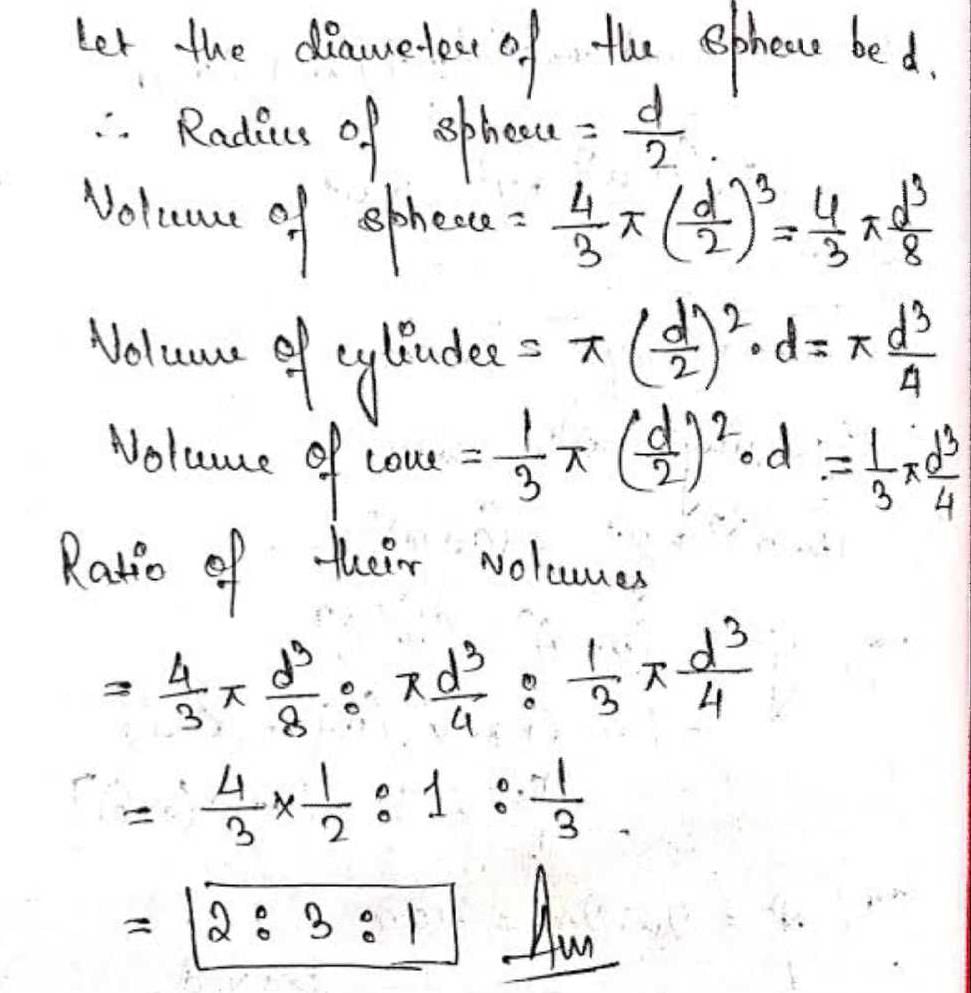 Let the diameter of the sphere be d.
∴ Radius of sphere = d/2
Volume of sphere = 4/3 π (d/2)³ = 4/3 π d³/8
Volume of cylinder = π (d/2)² · d = π d³/4
Volume of cone = 1/3 π (d/2)² · d = 1/3 π d³/4
Ratio of their volumes
= 4/3 π d³/8 : π d³/4 : 1/3 π d³/4
= 4/3 × 1/2 : 1 : 1/3
= 2 : 3 : 1 Ans